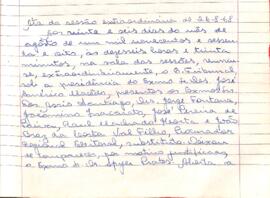 Ata da sessão extraordinária de 26-8-68
Aos vinte e seis dias do mês de
agosto de um mil novecentos e sessen
ta e oito, às dezesseis horas e trinta
minutos, na sala das sessões, reuniu-
se, extraordinàriamente, o E. Tribunal,
sob a presidência do Exmo. Sr. Des.
Américo Macêdo, presentes os Exmos. Srs.
Des. Assis Santiago, Drs. Jorge Fontana,
Jacomino Inacarato, José Pereira de
Paiva, Raul Machado Horta e João
Braz da Costa Val Filho, Procurador
Regional Eleitoral, substituto. Deixou
de comparecer, por motivo justificado,
o Exmo. Sr. Dr. Pontes. Aberta a